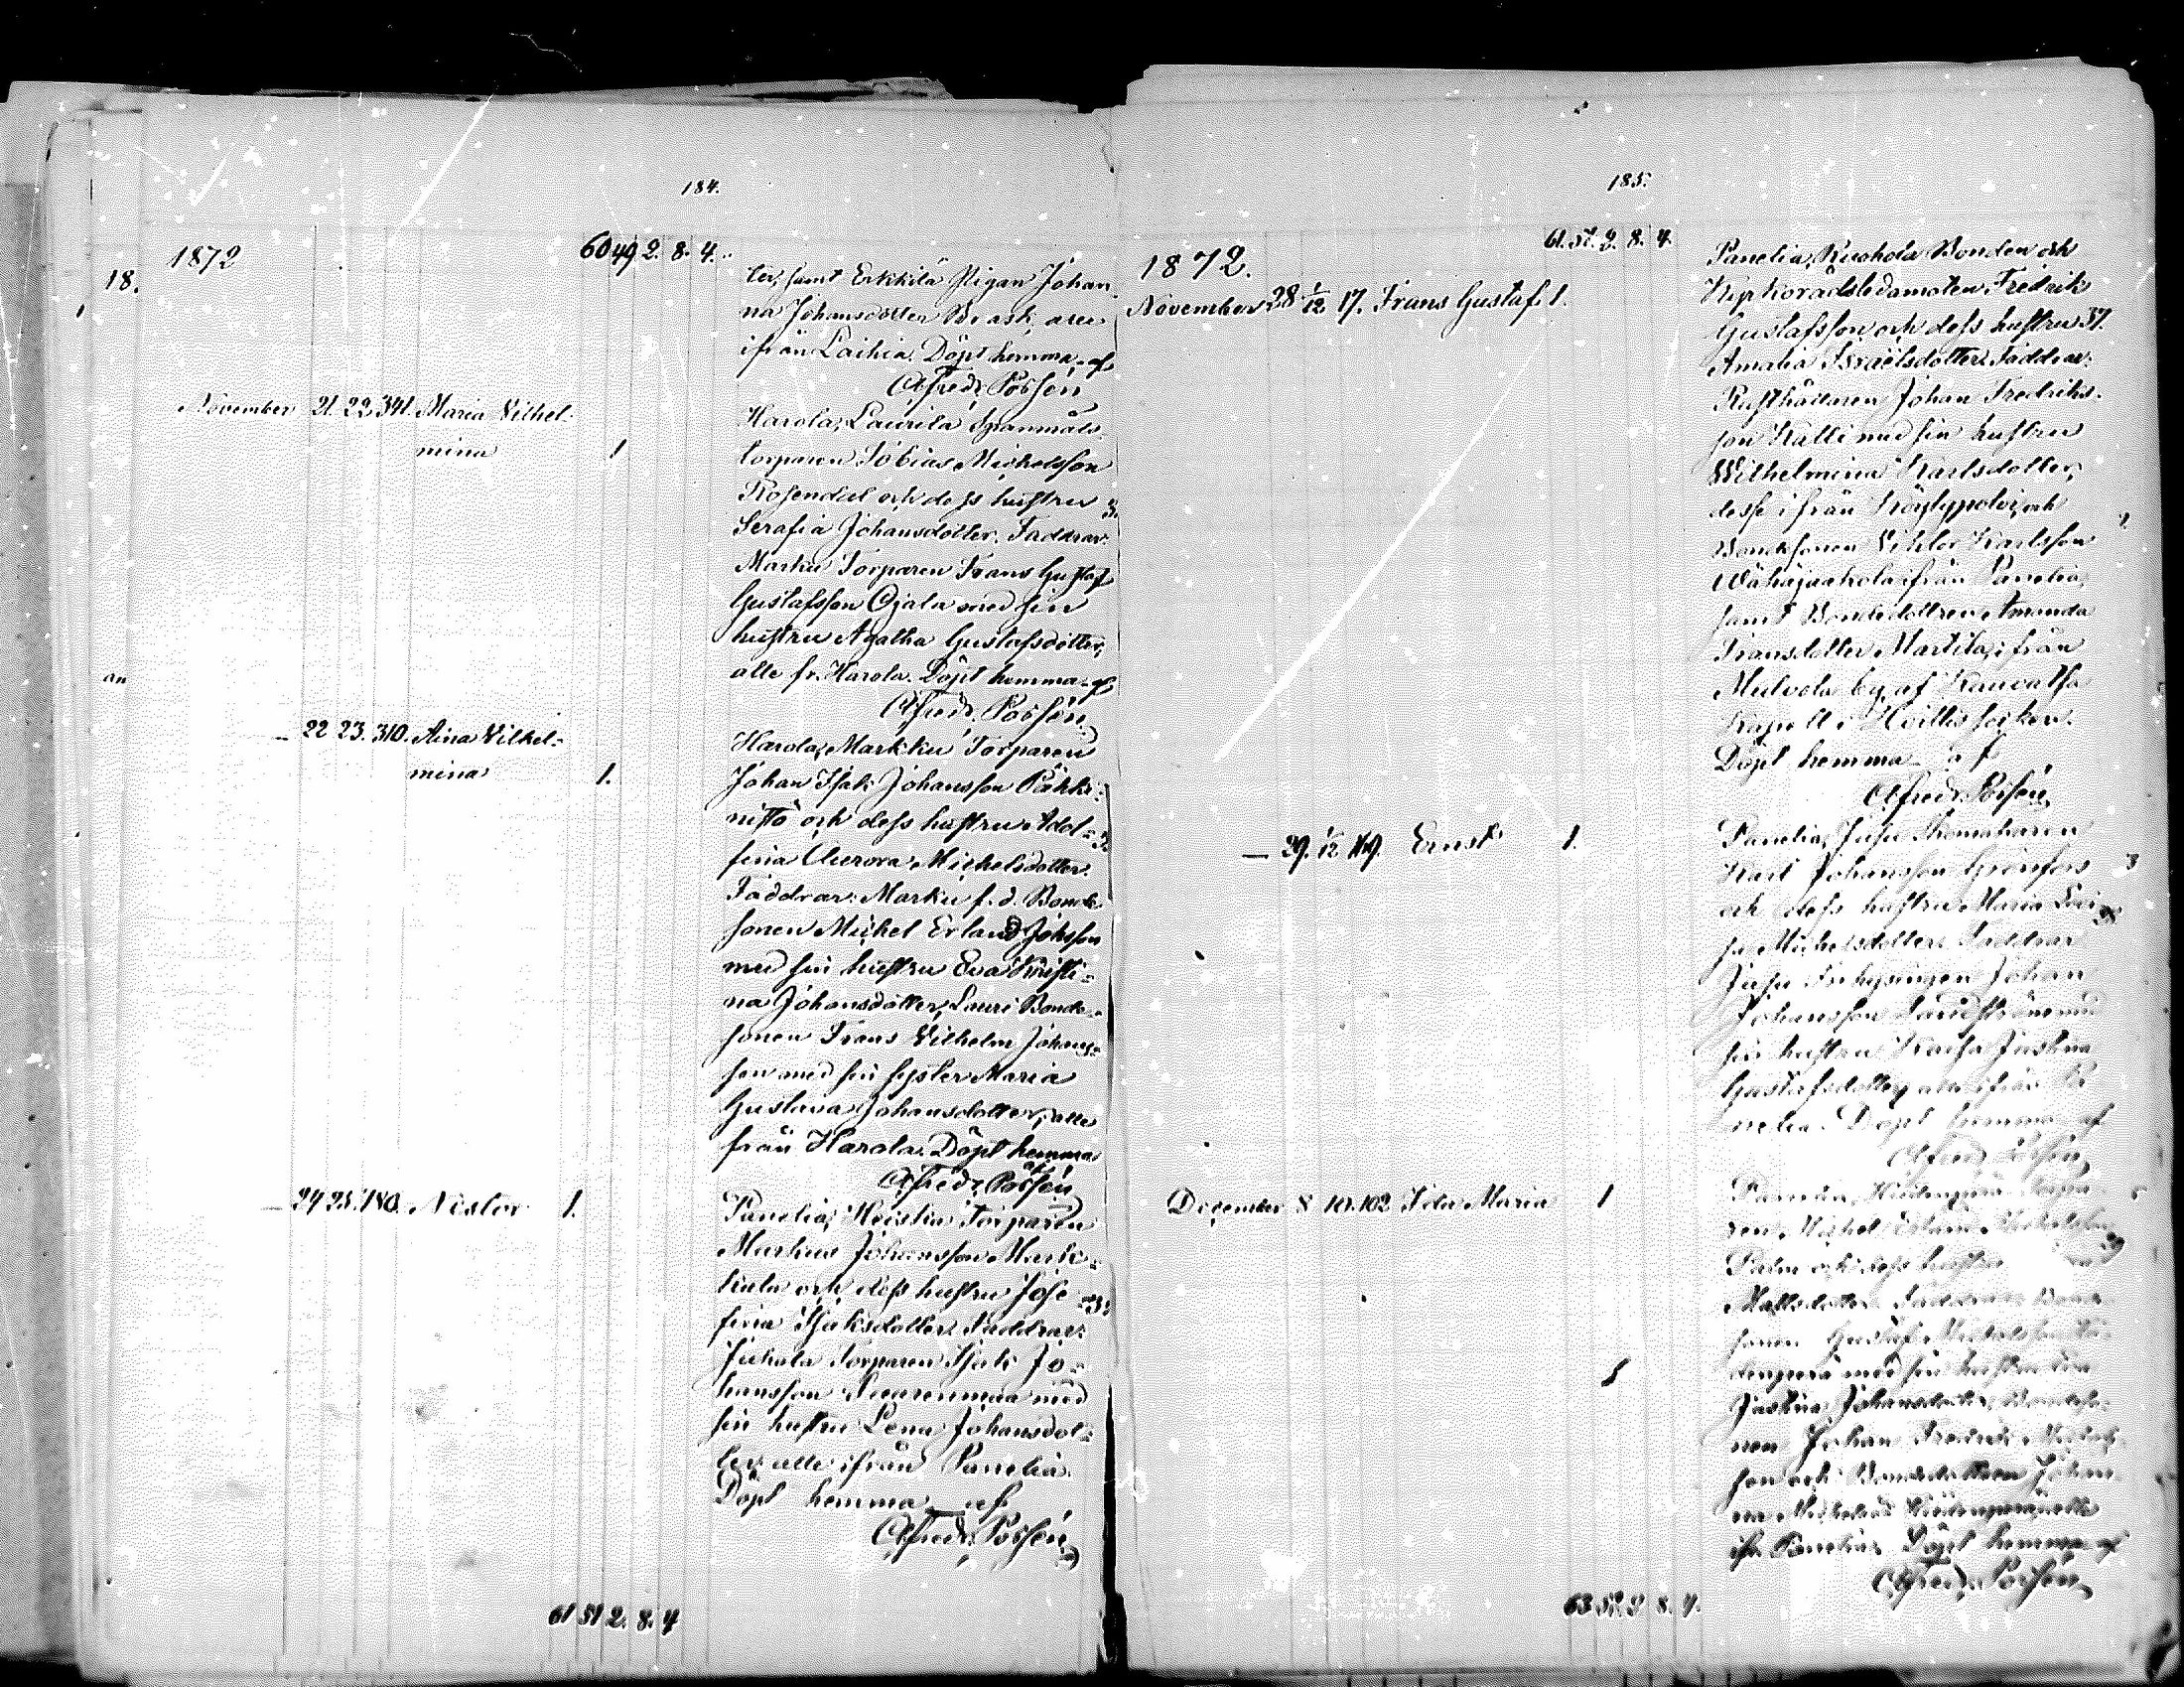 184.
1872
60 49 2. 8. 4.
18.
ter, samt Erkkilä Pigan Johan-
na Johansdotter Brask, alla
ifrån Laihia. Döpt hemma af
Alfred Possén
November 21. 22. 341. Maria Vilhel-
mina 1
Harola, Laurila Spanmåls-
torparen Tobias Michelsson
Rosendal och dess hustru 3.
Serafia Johansdotter. Faddrar:
Marku Torparen Frans Gustaf
Gustafsson Ojala med sin
hustru Agatha Gustafsdotter,
alle fr. Harola. Döpt hemma af
Alfred Possén
an
— 22 23. 310. Aina Vilhel-
mina 1.
Harola, Markku Torparen
Johan Isak Johansson Pähki-
nistö och dess hustru Adol-
fina Aurora Michelsdotter.
Faddrar: Marku f. d. Bonde-
sonen Michel Erland Johsson
med sin hustru Eva Kristi-
na Johansdotter, Lauri Bonde-
sonen Frans Vilhelm Johans-
son med sin syster Maria
Gustava Johansdotter, alle
från Harola. Döpt hemma
af
Alfred Possén
— 24 25. 180. Nestor 1.
Panelia, Heiskia Torparen
Markus Johansson Mark-
kula och dess hustru Jose-
fina Isaksdotter. Faddrar:
Juhola Torparen Isak Jo-
hansson Suarenmaa med
sin hustru Lena Johansdot-
ter alle ifrån Panelia.
Döpt hemma af
Alfred Possén
61 51 2. 8. 4
185.
1872.
61. 51. 2. 8. 4.
November 28 1/12 17. Frans Gustaf 1.
Panelia, Ruohola Bonden och
Kyrkorådsledamoten Fredrik
Gustafsson och dess hustru 37.
Amalia Israelsdotter. Faddrar:
Rusthållaren Johan Fredriks-
son Källi med sin hustru
Wilhelmina Karlsdotter,
desse ifrån Köylypolvi, och
Bondesonen Viktor Karlsson
Wähäjaakola ifrån Panelia,
samt Bondedottren Amanda
Fransdotter Martila, ifrån
Mulvola by af Kauvatsa
Kapell i Hvittis socken.
Döpt hemma af
Alfred Possén
— 29. 1/12 169. Ernst 1.
Panelia, Jusu
Karl Johansson Grönfors
och dess hustru Maria Lovi-
sa Michelsdotter. Faddrar
Jusu Inhysingen Johan
Johansson med
sin hustru Kaisa Justina
Gustafsdotter, alla ifrån Pa-
nelia. Döpt hemma af
Alfred Possén
December 8 10. 102 Ida Maria 1
Panelia,
ren Michel Erland
Palm och dess hustru
Mattsdotter. Faddrar: Bonde-
sonen Gustaf
med sin hustru
Justina Johansdotter, Bondeso-
nen Johan Fredrik
son och Bondedottren Johan-
na
ifr. Panelia. Döpt hemma af
Alfred Possén
63 52. 2 8. 4.